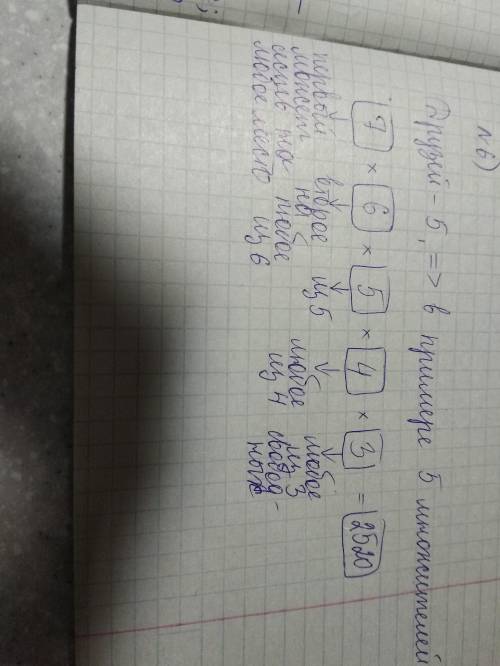 №6)
Друзей - 5, => в примере 5 множителей
7 × 6 × 5 × 4 × 3 = 2520
первый может сесть на любое место
второе на любое из 6
из 5
любое из 4
любое из 3 свобод-
ных